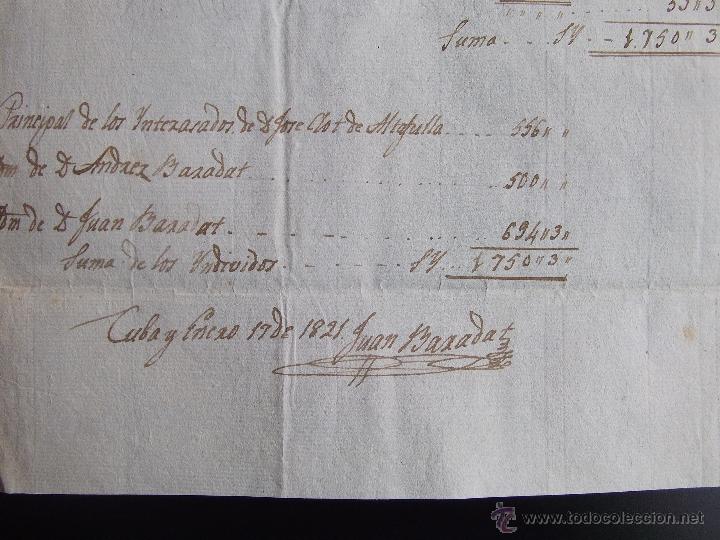 55 " 3
Suma SY 1.750 " 3
Principal de los Interasados de Dn Jose Clot de Altafulla 556 " "
Ydm de Dn Andrez Baradat 500 " "
Ydm de Dn Juan Baradat 694 " 3 "
Suma de los Yndividos SY 1750 " 3 "
Cuba y Enero 17 de 1821. Juan Baradat
© www.todocoleccion.net